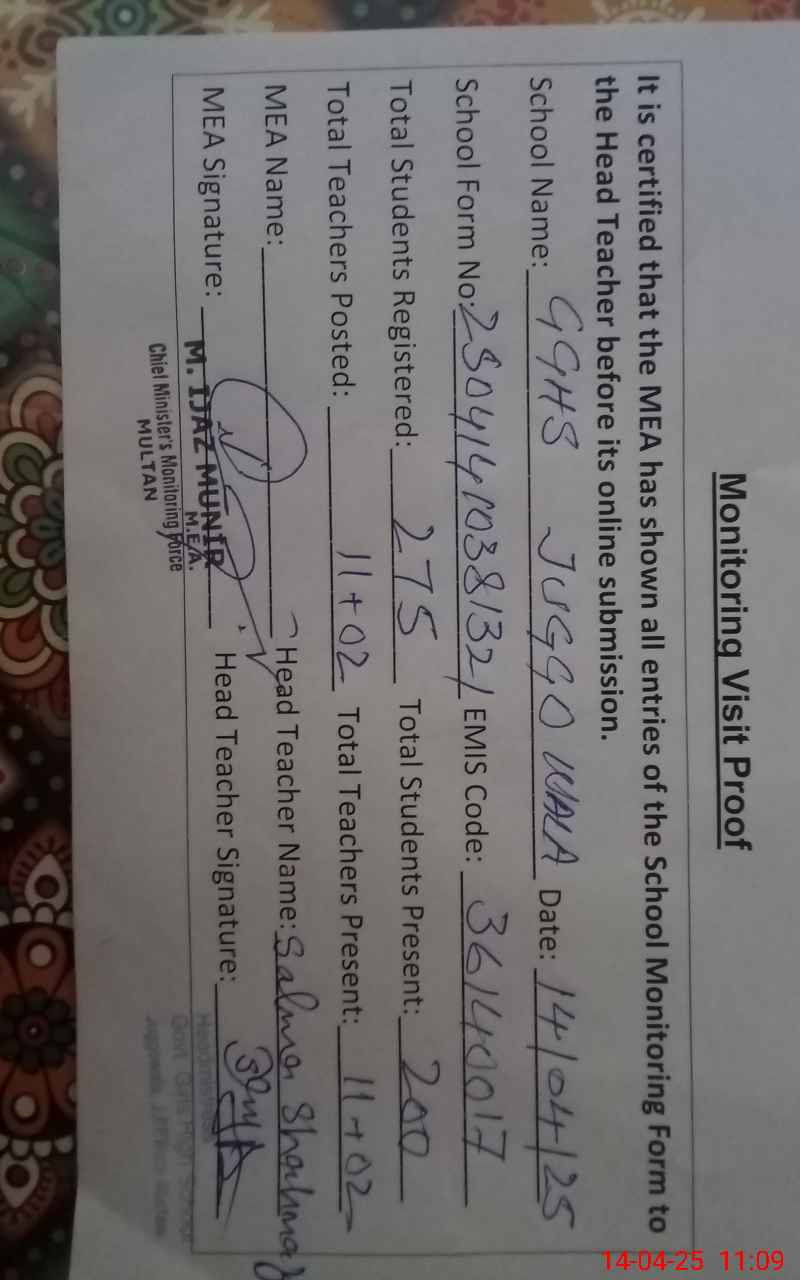 Monitoring Visit Proof
It is certified that the MEA has shown all entries of the School Monitoring Form to
the Head Teacher before its online submission.
School Name: GGHS JUGGOWALA Date: 14/04/25
School Form No: 25041410381321 EMIS Code: 36140017
Total Students Registered: 275 Total Students Present: 200
Total Teachers Posted: 11+02 Total Teachers Present: 11+02
MEA Name: Head Teacher Name: Salma
MEA Signature: Head Teacher Signature:
M. IJAZ MUNIR
M.E.A.
Chief Minister's Monitoring Force
MULTAN
Govt. Girls High School
14-04-25 11:09